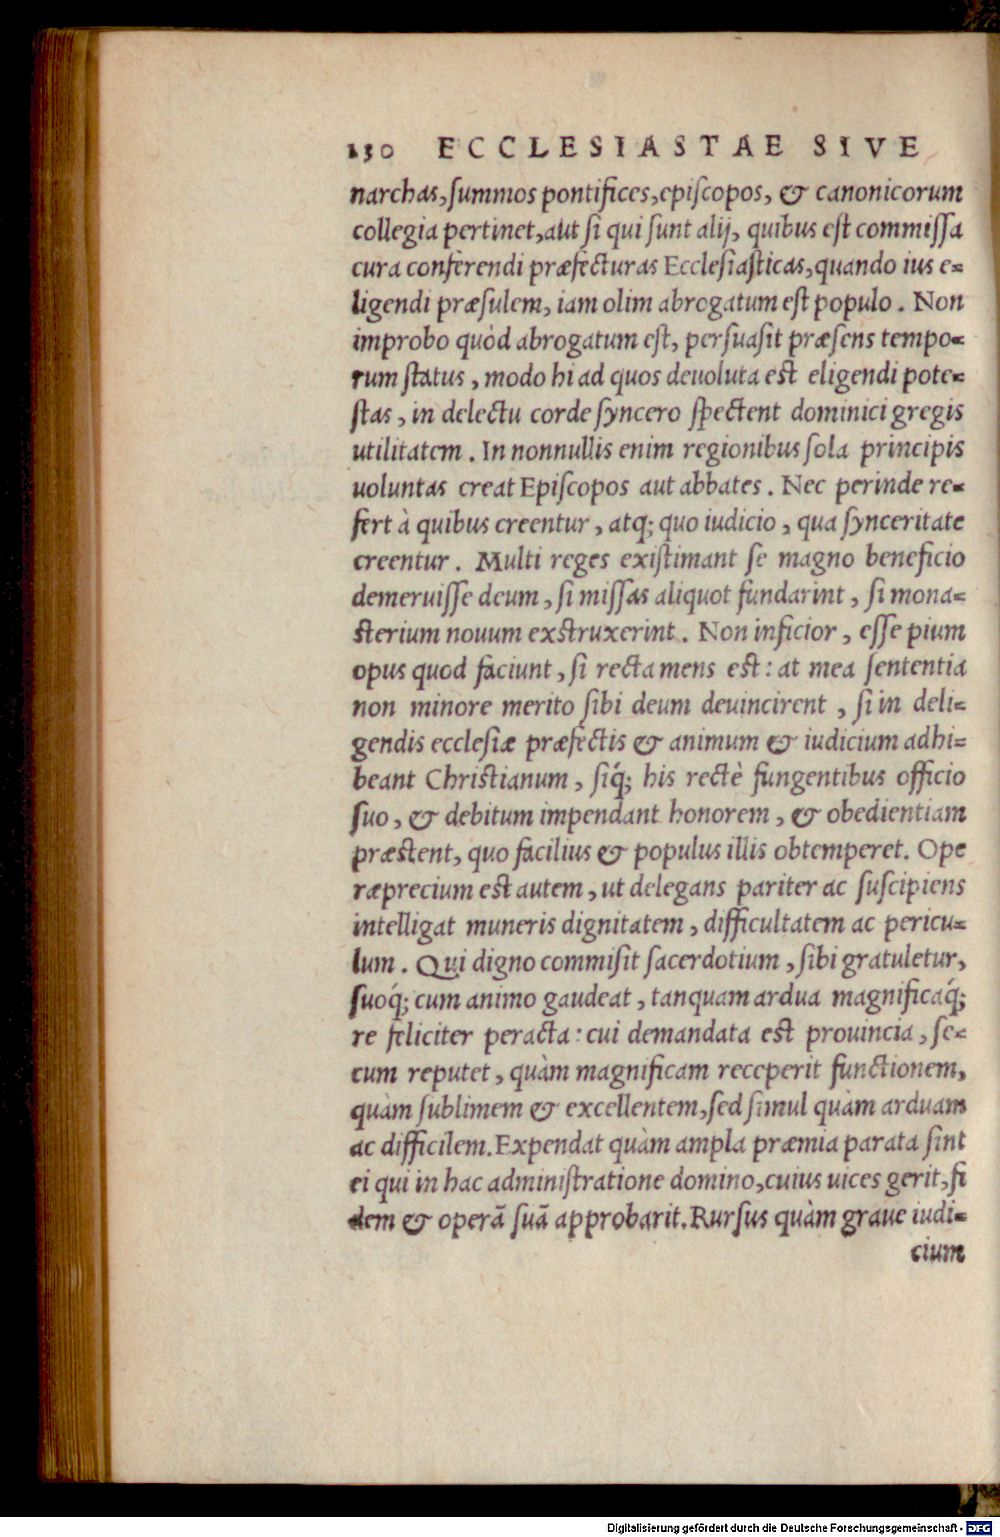 130 ECCLESIASTAE SIVE
narchas, ſummos pontifices, epiſcopos, & canonicorum
collegia pertinet, aut ſi qui ſunt alij, quibus eſt commiſſa
cura conferendi præfecturas Eccleſiaſticas, quando ius e-
ligendi præſulem, iam olim abrogatum eſt populo. Non
improbo quòd abrogatum eſt, perſuaſit præſens tempo-
rum ſtatus, modo hi ad quos deuoluta eſt eligendi pote-
ſtas, in delectu corde ſyncero ſpectent dominici gregis
utilitatem. In nonnullis enim regionibus ſola principis
uoluntas creat Epiſcopos aut abbates. Nec perinde re-
fert à quibus creentur, atq; quo iudicio, qua ſynceritate
creentur. Multi reges exiſtimant ſe magno beneficio
demeruiſſe deum, ſi miſſas aliquot fundarint, ſi mona-
ſterium nouum exſtruxerint. Non inficior, eſſe pium
opus quod faciunt, ſi recta mens eſt: at mea ſententia
non minore merito ſibi deum deuincirent, ſi in deli-
gendis eccleſiæ præfectis & animum & iudicium adhi-
beant Chriſtianum, ſiq́; his rectè fungentibus officio
ſuo, & debitum impendant honorem, & obedientiam
præſtent, quo facilius & populus illis obtemperet. Ope
ræprecium eſt autem, ut delegans pariter ac ſuſcipiens
intelligat muneris dignitatem, difficultatem ac pericu-
lum. Qui digno commiſit ſacerdotium, ſibi gratuletur,
ſuoq́; cum animo gaudeat, tanquam ardua magnificaq́;
re feliciter peracta: cui demandata eſt prouincia, ſe-
cum reputet, quàm magnificam receperit functionem,
quàm ſublimem & excellentem, ſed ſimul quàm arduam
ac difficilem. Expendat quàm ampla præmia parata ſint
ei qui in hac adminiſtratione domino, cuius uices gerit, fi
dem & operã ſuã approbarit. Rurſus quàm graue iudi-
cium
Digitalisierung gefördert durch die Deutsche Forschungsgemeinschaft - DFG